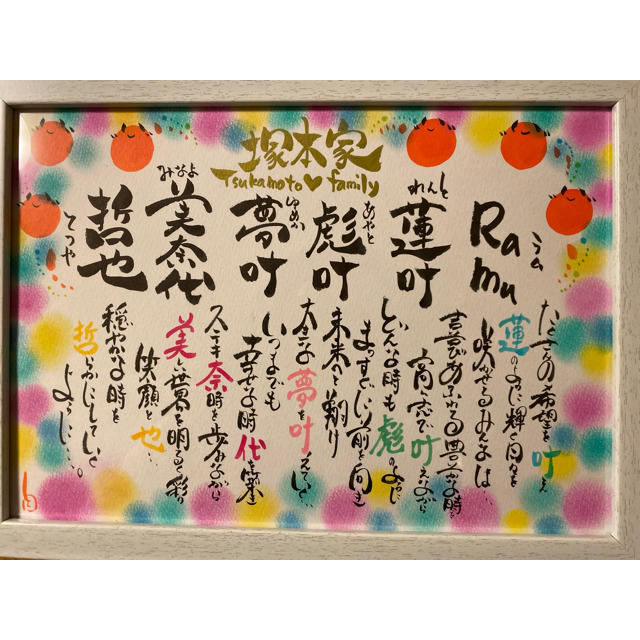 塚本家
Tsukamoto♡family
Ramu
らむ
蓮叶
れんと
彪叶
あやと
夢叶
ゆめか
美奈代
みなよ
哲也
てつや
たくさんの希望を叶え
蓮のように輝く日々を
咲かせるみんなは
喜びあふれる豊かな時を
高い志で叶えながら
どんな時も彪のように
まっすぐに前を向き
未来へと翔り
大きな夢を叶えていく
いつまでも
幸せな時代を築き
ステキ奈時を歩みながら
美しい世界を明るく彩り
笑顔と也…
穏やかな時を
哲らかにしていく
じょうじ…。